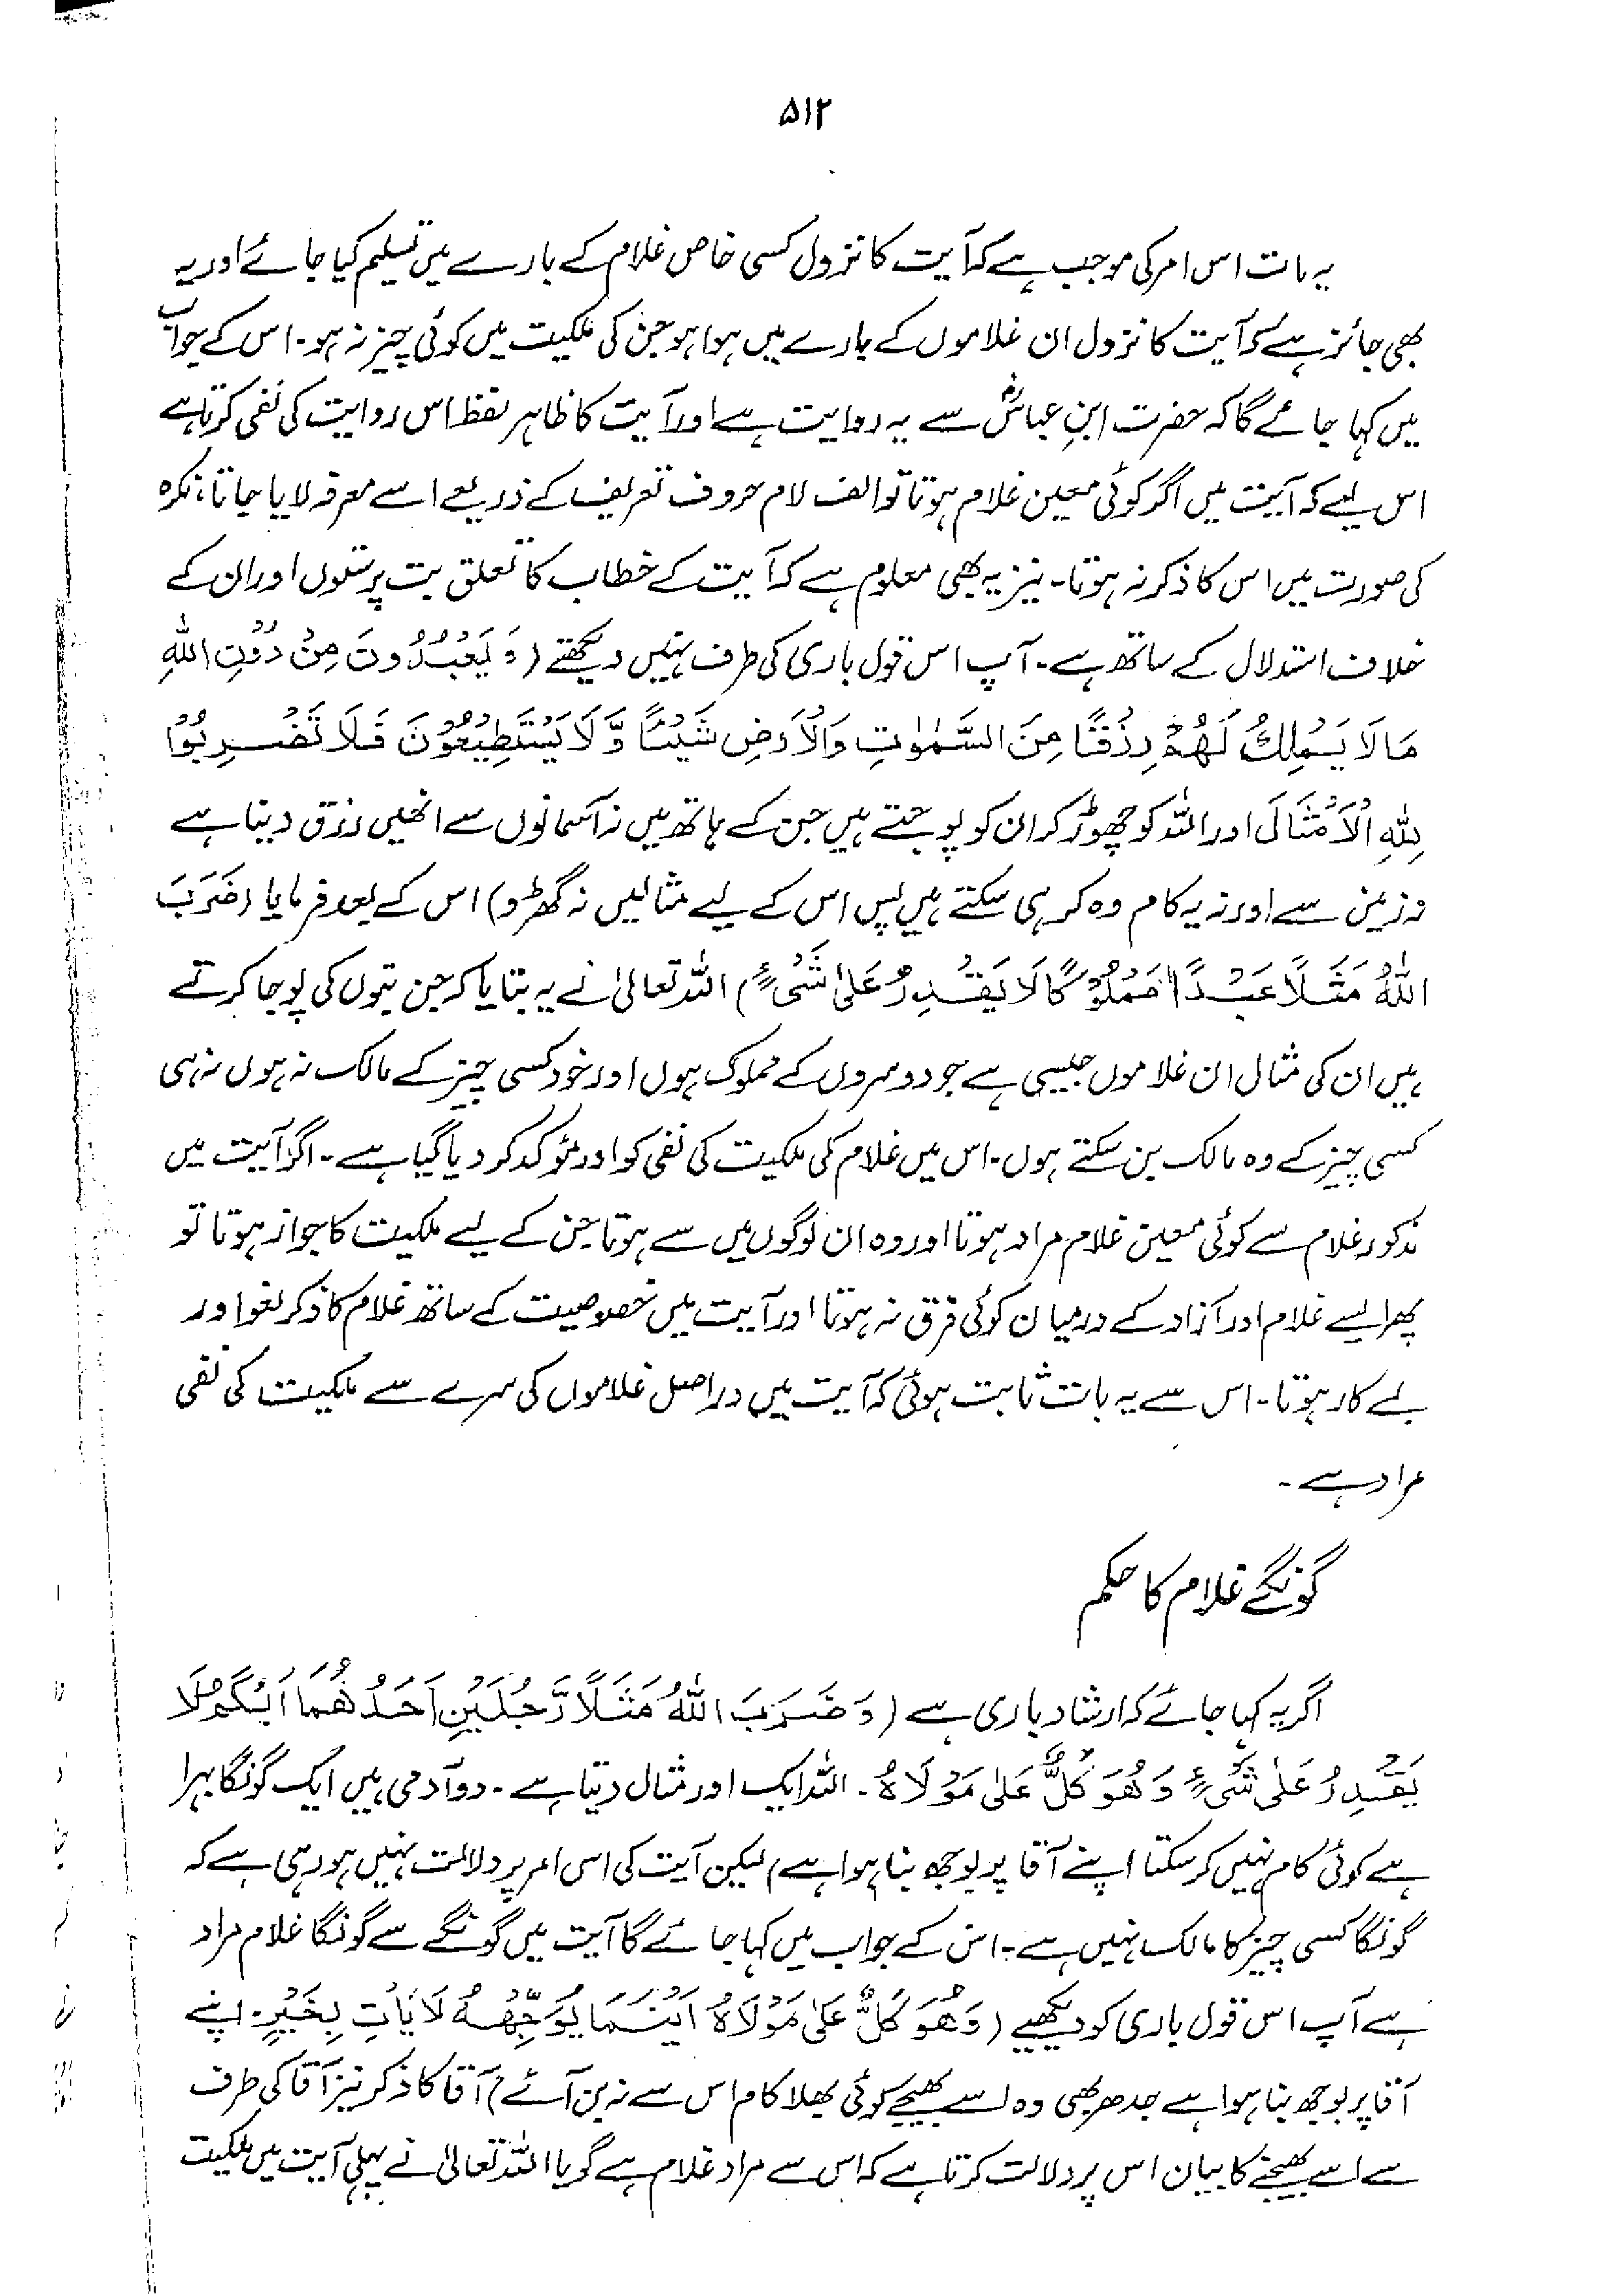 ۵۱۲
یہ بات اس امر کی موجب ہے کہ آیت کا نزول کسی خاص غلام کے بارے میں تسلیم کیا جائے اور یہ
بھی جائز ہے کہ آیت کا نزول ان غلاموں کے بارے میں ہوا ہو جن کی ملکیت میں کوئی چیز نہ ہو۔ اس کے جواب
میں کہا جائے گا کہ حضرت ابنِ عباسؓ سے یہ روایت ہے اور آیت کا ظاہر لفظ اس روایت کی نفی کرتا ہے
اس لیے کہ آیت میں اگر کوئی معین غلام ہوتا تو الف لام حروف تعریف کے ذریعے اسے معرفہ لایا جاتا، نکرہ
کی صورت میں اس کا ذکر نہ ہوتا۔ نیز یہ بھی معلوم ہے کہ آیت کے خطاب کا تعلق بت پرستوں اور ان کے
خلاف استدلال کے ساتھ ہے۔ آپ اس قول باری کی طرف نہیں دیکھتے (وَيَعْبُدُونَ مِنْ دُوْنِ اللّٰهِ
مَا لَا يَمْلِكُ لَهُمْ رِزْقًا مِنَ السَّمٰوٰتِ وَالْاَرْضِ شَيْئًا وَّلَا يَسْتَطِيْعُوْنَ فَلَا تَضْرِبُوْا
لِلّٰهِ الْاَمْثَالَ اور اللہ کو چھوڑ کر ان کو پوجتے ہیں جن کے ہاتھ میں نہ آسمانوں سے انھیں رزق دینا ہے
نہ زمین سے اور نہ یہ کام وہ کر ہی سکتے ہیں پس اس کے لیے مثالیں نہ گھڑو) اس کے بعد فرمایا (ضَرَبَ
اللّٰهُ مَثَلًا عَبْدًا مَمْلُوْكًا لَا يَقْدِرُ عَلٰى شَىْءٍ) اللہ تعالیٰ نے یہ بتایا کہ جن بتوں کی پوجا کرتے
ہیں ان کی مثال ان غلاموں جیسی ہے جو دوسروں کے مملوک ہوں اور خود کسی چیز کے مالک نہ ہوں نہ ہی
کسی چیز کے وہ مالک بن سکتے ہوں۔ اس میں غلام کی ملکیت کی نفی کو اور مؤکد کر دیا گیا ہے۔ اگر آیت میں
مذکور غلام سے کوئی معین غلام مراد ہوتا اور وہ ان لوگوں میں سے ہوتا جن کے لیے ملکیت کا جواز ہوتا تو
پھر ایسے غلام اور آزاد کے درمیان کوئی فرق نہ ہوتا اور آیت میں خصوصیت کے ساتھ غلام کا ذکر لغو اور
بے کار ہوتا۔ اس سے یہ بات ثابت ہوئی کہ آیت میں دراصل غلاموں کی سرے سے ملکیت کی نفی
مراد ہے۔
گونگے غلام کا حکم
اگر یہ کہا جائے کہ ارشاد باری ہے (وَضَرَبَ اللّٰهُ مَثَلًا رَّجُلَيْنِ اَحَدُهُمَا اَبْكَمُ لَا
يَقْدِرُ عَلٰى شَىْءٍ وَهُوَ كَلٌّ عَلٰى مَوْلَاهُ۔ اللہ ایک اور مثال دیتا ہے۔ دو آدمی ہیں ایک گونگا بہرا
ہے کوئی کام نہیں کر سکتا اپنے آقا پر بوجھ بنا ہوا ہے) لیکن آیت کی اس امر پر دلالت نہیں ہو رہی ہے کہ
گونگا کسی چیز کا مالک نہیں ہے۔ اس کے جواب میں کہا جائے گا آیت میں گونگے سے گونگا غلام مراد
ہے آپ اس قول باری کو دیکھیے (وَهُوَ كَلٌّ عَلٰى مَوْلَاهُ اَيْنَمَا يُوَجِّهْهُ لَا يَأْتِ بِخَيْرٍ۔ اپنے
آقا پر بوجھ بنا ہوا ہے جدھر بھی وہ اسے بھیجے کوئی بھلا کام اس سے نہ بن آئے) آقا کا ذکر نیز آقا کی طرف
سے اسے بھیجنے کا بیان اس پر دلالت کرتا ہے کہ اس سے مراد غلام ہے گویا اللہ تعالیٰ نے پہلی آیت میں ملکیت